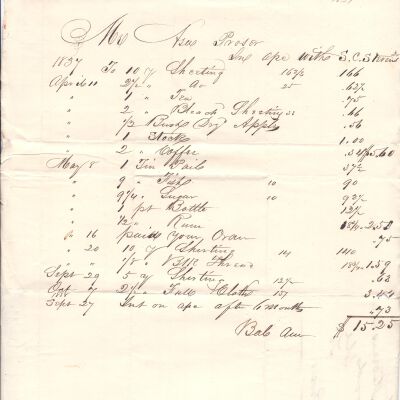 Mr Asa Prosor
In ape with S. C. Stevens
1837 To 10 y Sheeting 16 2/3 166
April 11 " 2 1/2 " do 25 .62 1/2
" 1 " Tea .75
" 2 " Bleach Sheeting 33 .66
" 1/2 Bush Dry Apples .56
" 1 Stock 1.00
" 2 " Coffee
May 8 1 Tin Pail 37 1/2
" 9 " Fish 10 90
" 9 1/4 " Sugar 10 92 1/2
" 1 pt Bottle 12 1/2
" " Rum 2.52
" 16 paid your Order .75
" 20 10 y Shirting 14 140
" " Thread 1.59
Sept 29 5 y Shirting 12 1/2 .63
Oct 7 2 1/4 " Full Cloth
Sept 27 Int on ape aft 6 months .73
Bal due $15.25